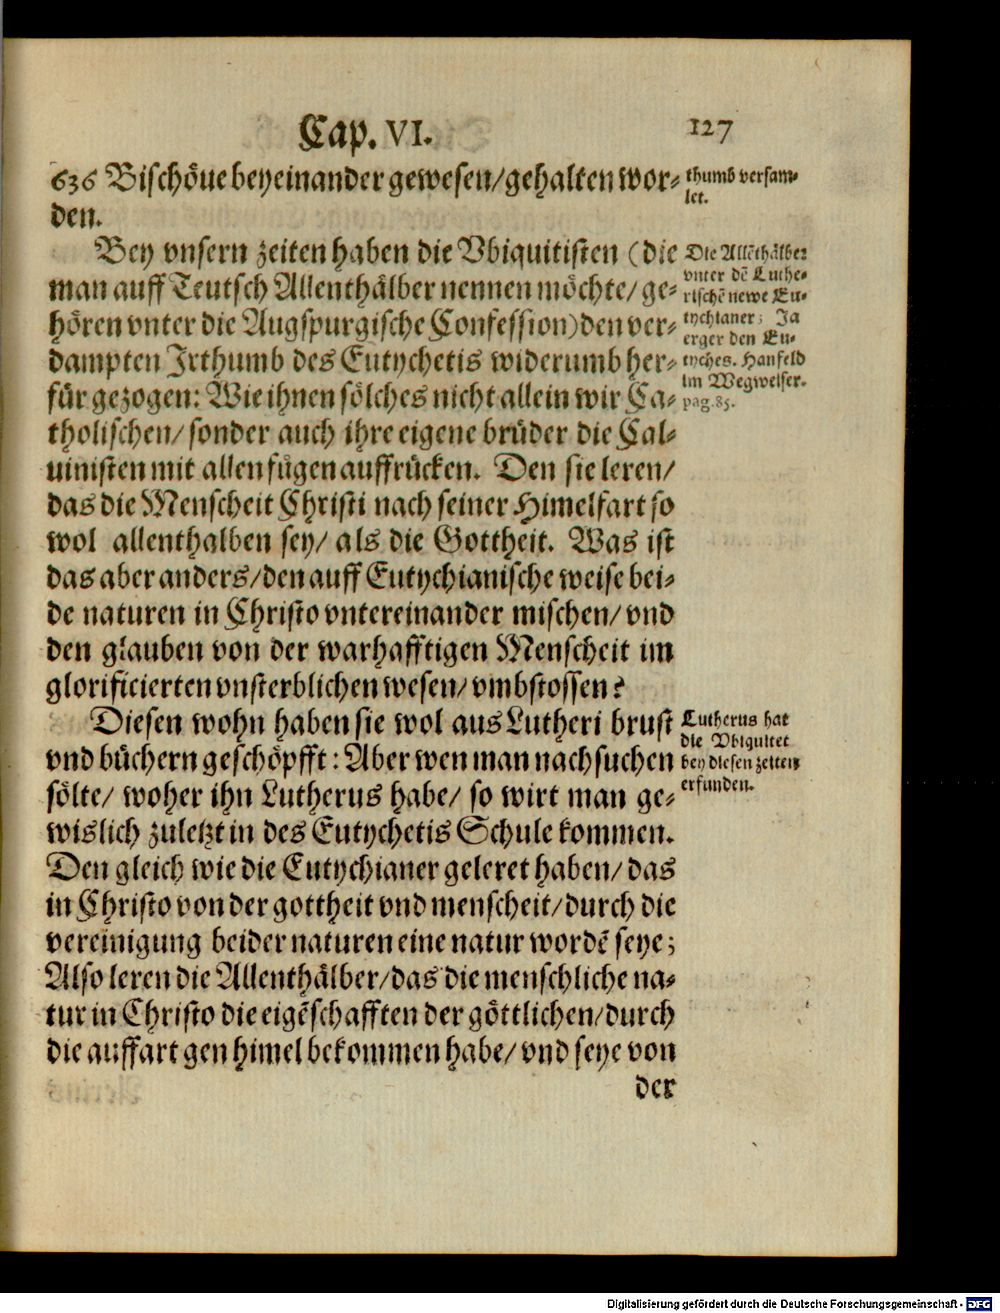 Cap. VI. 127
636 Bischöue beyeinander gewesen/gehalten wor-
den.
thumb versam-
let.
Bey vnsern zeiten haben die Vbiquitisten (die
man auff Teutsch Allenthälber nennen möchte/ ge-
hören vnter die Augspurgische Confession) den ver-
dampten Irthumb des Eutychetis widerumb her-
für gezogen: Wie ihnen sölches nicht allein wir Ca-
tholischen/ sonder auch ihre eigene brüder die Cal-
uinisten mit allen fügen auffrücken. Den sie leren/
das die Menscheit Christi nach seiner Himelfart so
wol allenthalben sey/ als die Gottheit. Was ist
das aber anders/den auff Eutychianische weise bei-
de naturen in Christo vntereinander mischen/ vnd
den glauben von der warhafftigen Menscheit im
glorificierten vnsterblichen wesen/ vmbstossen?
Die Allēthälber
vnter dē Luthe-
rischē newe Eu-
tychianer; Ja
erger den Eu-
tyches. Hanfeld
im Wegweiser.
pag. 85.
Diesen wohn haben sie wol aus Lutheri brust
vnd büchern geschöpfft: Aber wen man nachsuchen
sölte/ woher ihn Lutherus habe/ so wirt man ge-
wislich zuletzt in des Eutychetis Schule kommen.
Den gleich wie die Eutychianer geleret haben/ das
in Christo von der gottheit vnd menscheit/ durch die
vereinigung beider naturen eine natur wordē seye;
Also leren die Allenthälber/das die menschliche na-
tur in Christo die eigēschafften der göttlichen/durch
die auffart gen himel bekommen habe/ vnd seye von
der
Lutherus hat
die Vbiquitet
bey diesen zeiten
erfunden.
Digitalisierung gefördert durch die Deutsche Forschungsgemeinschaft - DFG